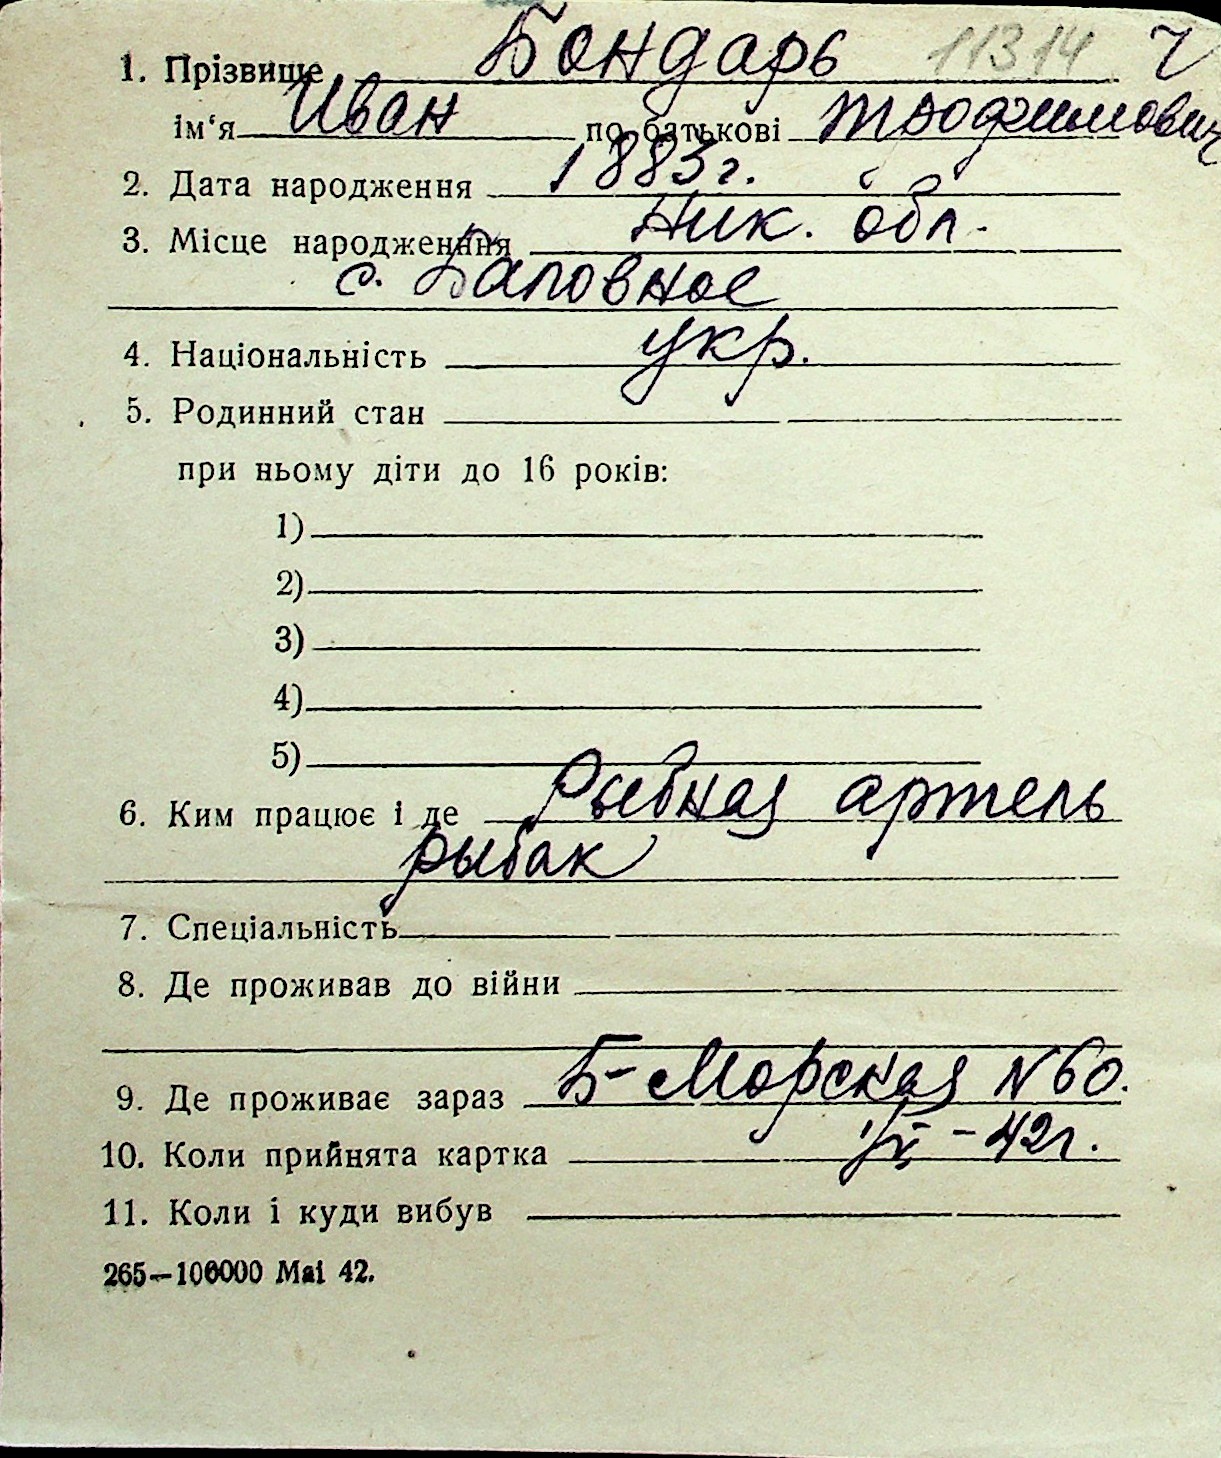 1. Прізвище Бондарь 11314 Ч
ім‘я Иван по батькові Трофимович
2. Дата народження 1883г.
3. Місце народженння Ник. обл.
с. Баловное
4. Національність укр.
5. Родинний стан
при ньому діти до 16 років:
1)
2)
3)
4)
5)
6. Ким працює і де Рыбная артель
рыбак
7. Спеціальність
8. Де проживав до війни
9. Де проживає зараз Б-Морская N 60.
10. Коли прийнята картка -42г.
11. Коли і куди вибув
265—100000 Mai 42.